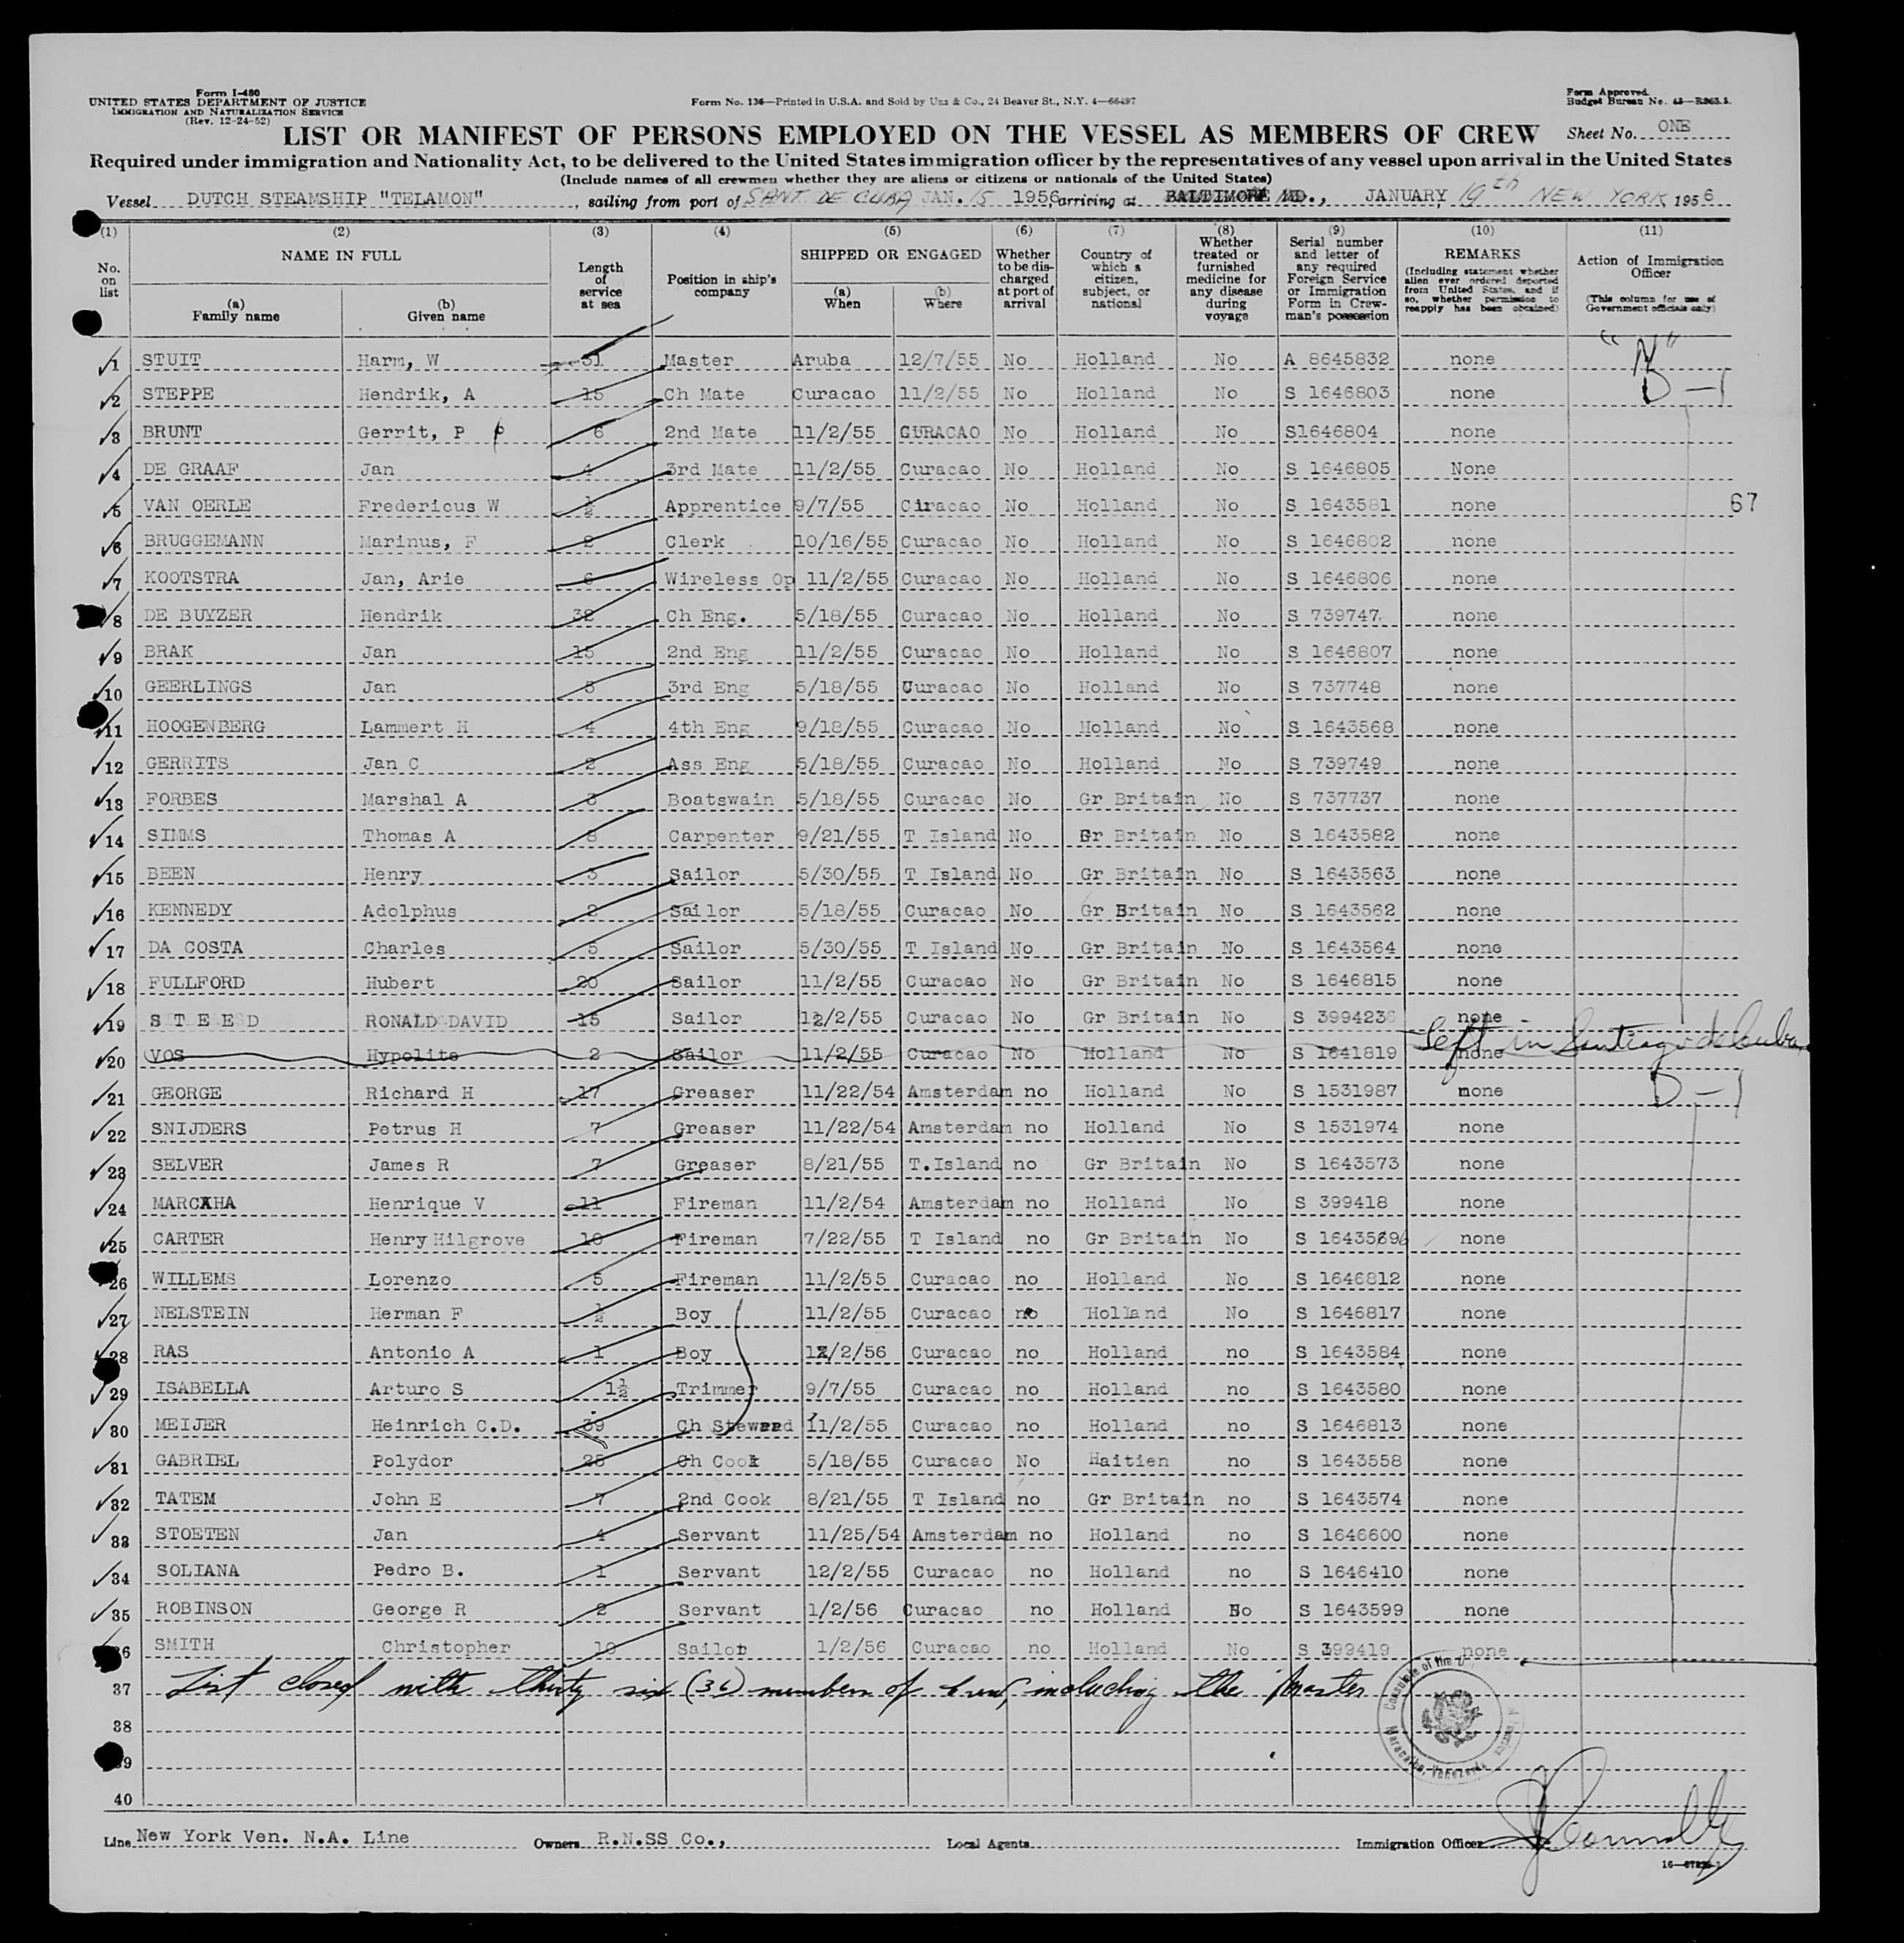 Form I-480
UNITED STATES DEPARTMENT OF JUSTICE
IMMIGRATION AND NATURALIZATION SERVICE
(Rev. 12-24-52)
Form No. 136—Printed in U.S.A. and Sold by Unz & Co., 24 Beaver St., N.Y. 4—66497
Form Approved
Budget Bureau No. 43—R363.5.
LIST OR MANIFEST OF PERSONS EMPLOYED ON THE VESSEL AS MEMBERS OF CREW Sheet No. ONE
Required under immigration and Nationality Act, to be delivered to the United States immigration officer by the representatives of any vessel upon arrival in the United States
(Include names of all crewmen whether they are aliens or citizens or nationals of the United States)
Vessel DUTCH STEAMSHIP "TELAMON", sailing from port of SANT. DE CUBA JAN. 15 1956, arriving at BALTIMORE MD., JANUARY, 19th NEW YORK 1956
(1) (2) (3) (4) (5) (6) (7) (8) (9) (10) (11)
No. on list
NAME IN FULL
(a) Family name
(b) Given name
Length of service at sea
Position in ship's company
SHIPPED OR ENGAGED
(a) When
(b) Where
Whether to be discharged at port of arrival
Country of which a citizen, subject, or national
Whether treated or furnished medicine for any disease during voyage
Serial number and letter of any required Foreign Service or Immigration Form in Crewman's possession
REMARKS
(Including statement whether alien ever ordered deported from United States, and if so, whether permission to reapply has been obtained)
Action of Immigration Officer
(This column for use of Government officials only)
1 STUIT Harm, W 31 Master Aruba 12/7/55 No Holland No A 8645832 none
2 STEPPE Hendrik, A 15 Ch Mate Curacao 11/2/55 No Holland No S 1646803 none D-1
3 BRUNT Gerrit, P 6 2nd Mate 11/2/55 CURACAO No Holland No S1646804 none
4 DE GRAAF Jan 4 3rd Mate 11/2/55 Curacao No Holland No S 1646805 None
5 VAN OERLE Fredericus W ½ Apprentice 9/7/55 Ciracao No Holland No S 1643581 none 67
6 BRUGGEMANN Marinus, F 2 Clerk 10/16/55 Curacao No Holland No S 1646802 none
7 KOOTSTRA Jan, Arie 6 Wireless Op 11/2/55 Curacao No Holland No S 1646806 none
8 DE BUYZER Hendrik 32 Ch Eng. 5/18/55 Curacao No Holland No S 739747 none
9 BRAK Jan 15 2nd Eng 11/2/55 Curacao No Holland No S 1646807 none
10 GEERLINGS Jan 3 3rd Eng 5/18/55 Curacao No Holland No S 737748 none
11 HOOGENBERG Lammert H 4 4th Eng 9/18/55 Curacao No Holland No S 1643568 none
12 GERRITS Jan C 2 Ass Eng 5/18/55 Curacao No Holland No S 739749 none
13 FORBES Marshal A 3 Boatswain 5/18/55 Curacao No Gr Britain No S 737737 none
14 SIMMS Thomas A 8 Carpenter 9/21/55 T Island No Gr Britain No S 1643582 none
15 BEEN Henry 3 Sailor 5/30/55 T Island No Gr Britain No S 1643563 none
16 KENNEDY Adolphus 2 Sailor 5/18/55 Curacao No Gr Britain No S 1643562 none
17 DA COSTA Charles 5 Sailor 5/30/55 T Island No Gr Britain No S 1643564 none
18 FULLFORD Hubert 20 Sailor 11/2/55 Curacao No Gr Britain No S 1646815 none
19 S T E E D RONALD DAVID 15 Sailor 12/2/55 Curacao No Gr Britain No S 3994236 none
20 VOS Hypolite 2 Sailor 11/2/55 Curacao No Holland No S 1641819 none Left in Santiago de Cuba
21 GEORGE Richard H 17 Greaser 11/22/54 Amsterdam no Holland No S 1531987 none D-1
22 SNIJDERS Petrus H 7 Greaser 11/22/54 Amsterdam no Holland No S 1531974 none
23 SELVER James R 7 Greaser 8/21/55 T.Island no Gr Britain No S 1643573 none
24 MARCHA Henrique V 11 Fireman 11/2/54 Amsterdam no Holland No S 399418 none
25 CARTER Henry Hilgrove 10 Fireman 7/22/55 T Island no Gr Britain No S 1643569 none
26 WILLEMS Lorenzo 5 Fireman 11/2/55 Curacao no Holland No S 1646812 none
27 NELSTEIN Herman F ½ Boy 11/2/55 Curacao no Holland No S 1646817 none
28 RAS Antonio A 1 Boy 12/2/56 Curacao no Holland no S 1643584 none
29 ISABELLA Arturo S 1½ Trimmer 9/7/55 Curacao no Holland no S 1643580 none
30 MEIJER Heinrich C.D. 39 Ch Steward 11/2/55 Curacao no Holland no S 1646813 none
31 GABRIEL Polydor 25 Ch Cook 5/18/55 Curacao No Haitien no S 1643558 none
32 TATEM John E 7 2nd Cook 8/21/55 T Island no Gr Britain no S 1643574 none
33 STOETEN Jan 4 Servant 11/25/54 Amsterdam no Holland no S 1646600 none
34 SOLIANA Pedro B. 1 Servant 12/2/55 Curacao no Holland no S 1646410 none
35 ROBINSON George R 2 Servant 1/2/56 Curacao no Holland No S 1643599 none
36 SMITH Christopher 10 Sailor 1/2/56 Curacao no Holland No S 399419 none
37 List closed with thirty six (36) members of crew, including the Master
38
39
40
Consulate of the
Maracaibo, Venezuela
Line New York Ven. N.A. Line Owners R.N.SS Co., Local Agents Immigration Officer